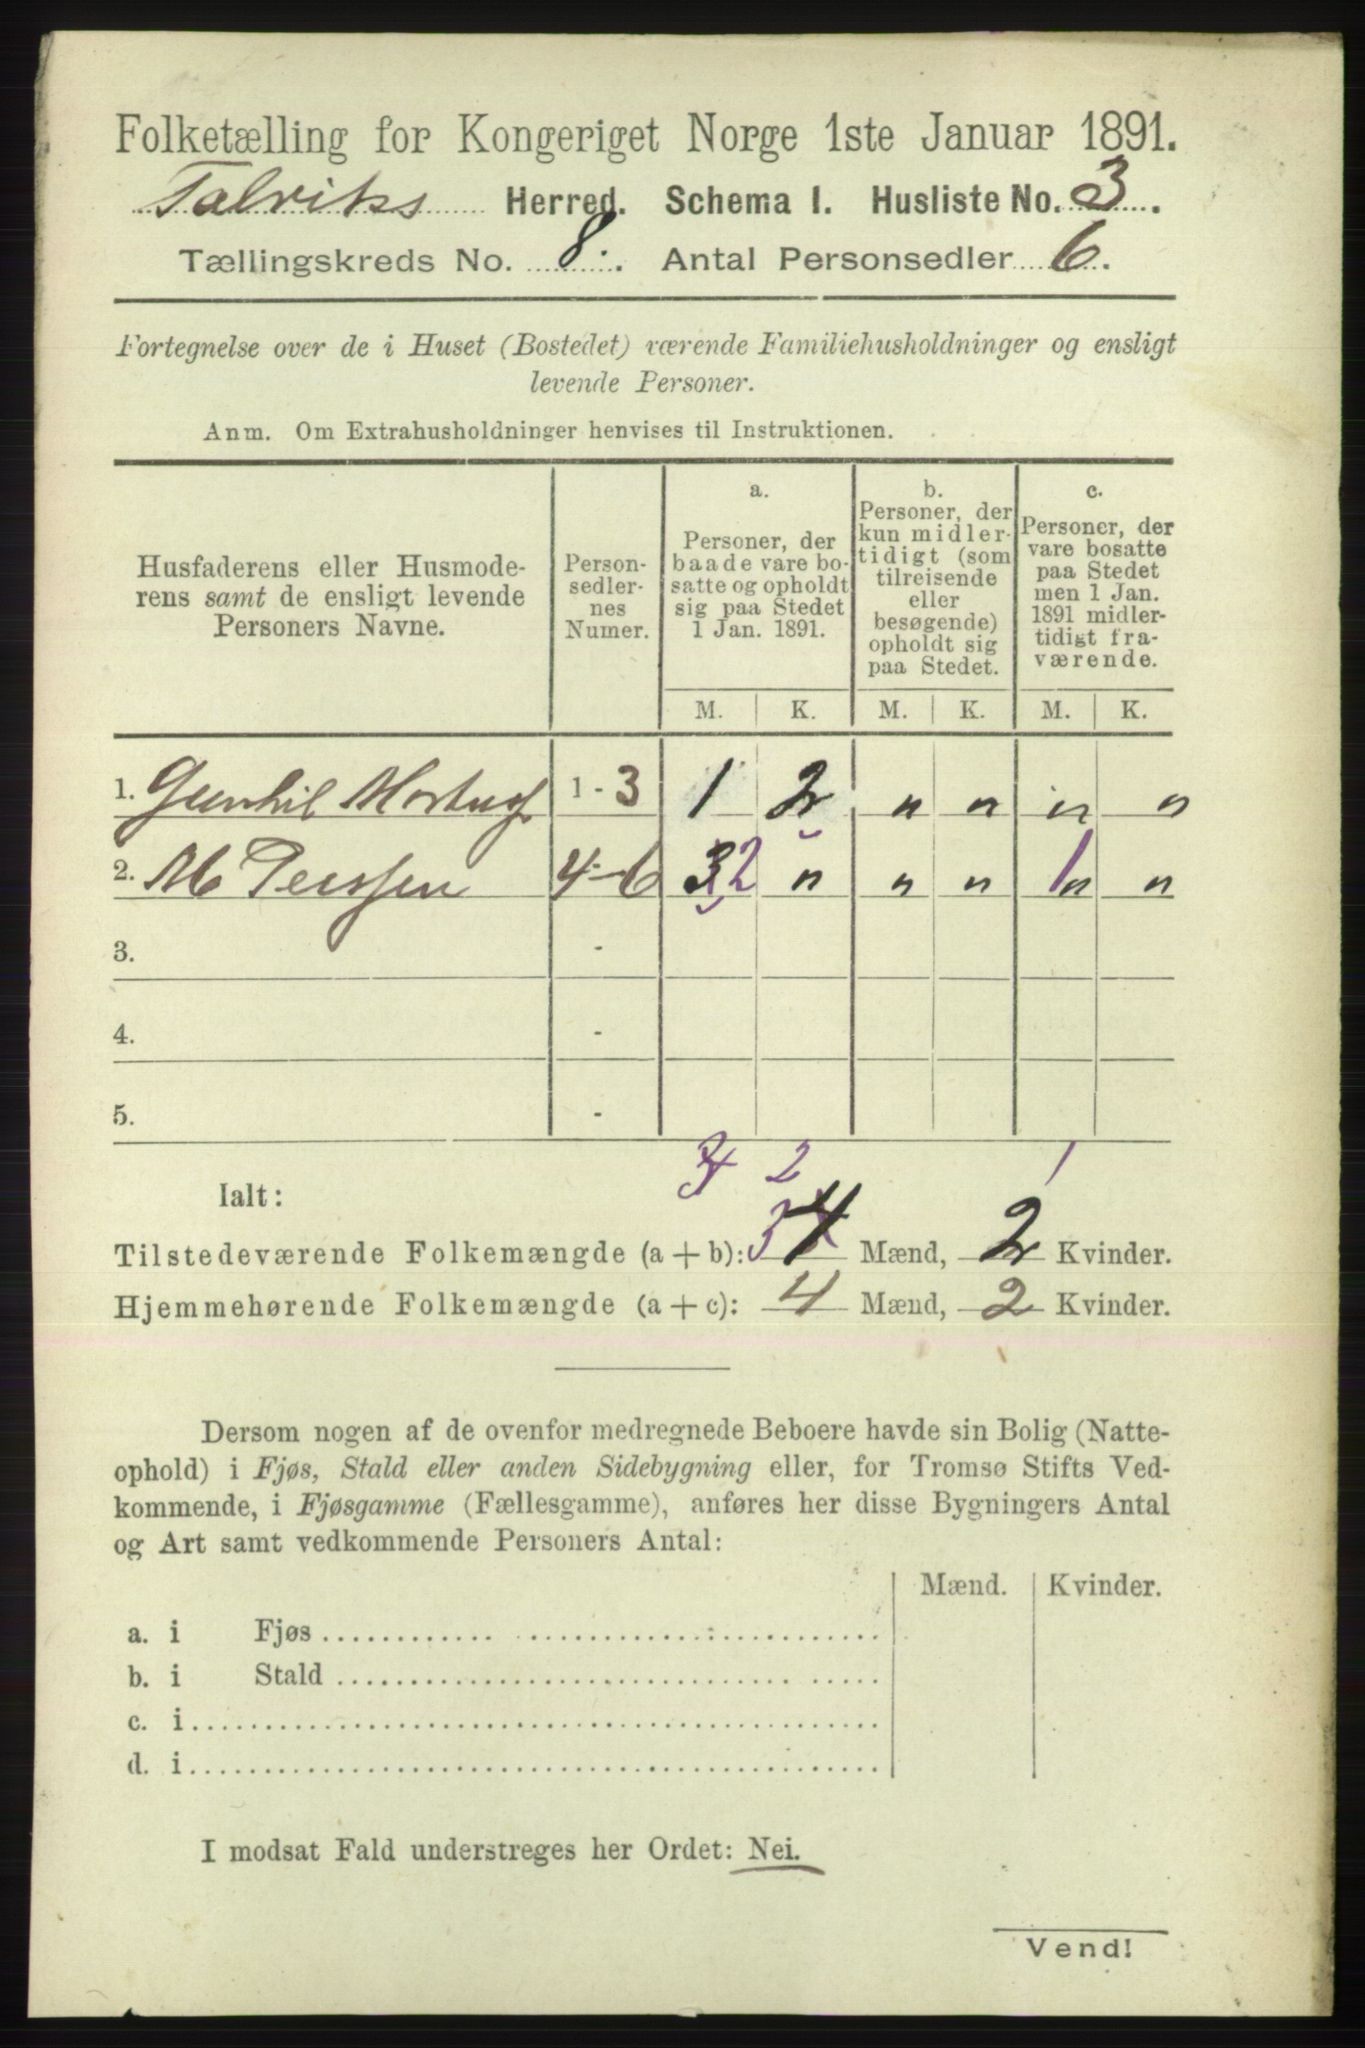 Folketælling for Kongeriget Norge 1ste Januar 1891.
Talviks Herred. Schema I. Husliste No. 3.
Tællingskreds No. 8. Antal Personsedler 6.
Fortegnelse over de i Huset (Bostedet) værende Familiehusholdninger og ensligt
levende Personer.
Anm. Om Extrahusholdninger henvises til Instruktionen.
Husfaderens eller Husmode-
rens samt de ensligt levende
Personers Navne.
Person-
sedler-
nes
Numer.
a.
Personer, der
baade vare bo-
satte og opholdt
sig paa Stedet
1 Jan. 1891.
b.
Personer, der
kun midler-
tidigt (som
tilreisende
eller
besøgende)
opholdt sig
paa Stedet.
c.
Personer, der
vare bosatte
paa Stedet
men 1 Jan.
1891 midler-
tidigt fra-
værende.
M. K. M. K. M. K.
1. Gunhil 1 - 3 1 2 " " " "
2. M Perssen 4-6 3 2 " " " 1 " "
3. -
4. -
5. -
3 2 1
Ialt:
Tilstedeværende Folkemængde (a + b): 3 4 Mænd, 2 Kvinder.
Hjemmehørende Folkemængde (a + c): 4 Mænd, 2 Kvinder.
Dersom nogen af de ovenfor medregnede Beboere havde sin Bolig (Natte-
ophold) i Fjøs, Stald eller anden Sidebygning eller, for Tromsø Stifts Ved-
kommende, i Fjøsgamme (Fællesgamme), anføres her disse Bygningers Antal
og Art samt vedkommende Personers Antal:
Mænd. Kvinder.
a. i Fjøs
b. i Stald
c. i
d. i
I modsat Fald understreges her Ordet: Nei.
Vend!